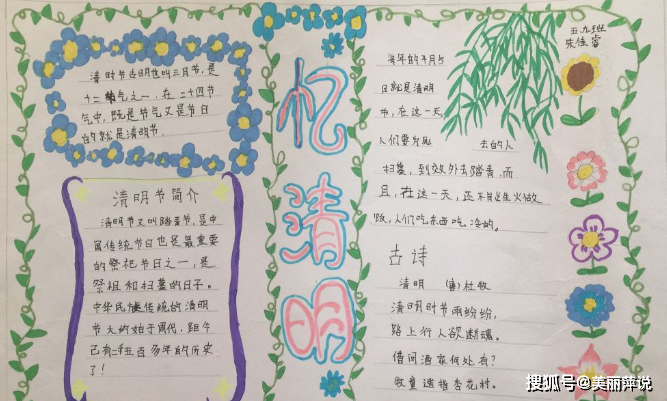 清时节在明也叫三月节,是
十二节气之一,在二十四节
气中,既是节气又是节日
的就是清明节。
清明节简介
清明节又叫踏青节,是中
国传统节日也是最重要
的祭祀节日之一,是
祭祖和扫墓的日子。
中华民族传统的清明
节大约始于周代,距今
已有二千五百多年的历史
了!
忆清明
五、九班
朱佳睿
每年的4月5
日就是清明
节,在这一天,
人们要为死 去的人
扫墓,到效外去踏青,而
且,在这一天,还不能生火做
饭,人们吃东西吃冷的。
古诗
清明 (唐)杜牧
清明时节雨纷纷,
路上行人欲断魂。
借问酒家何处有?
牧童遥指杏花村。
搜狐号@美丽萍说